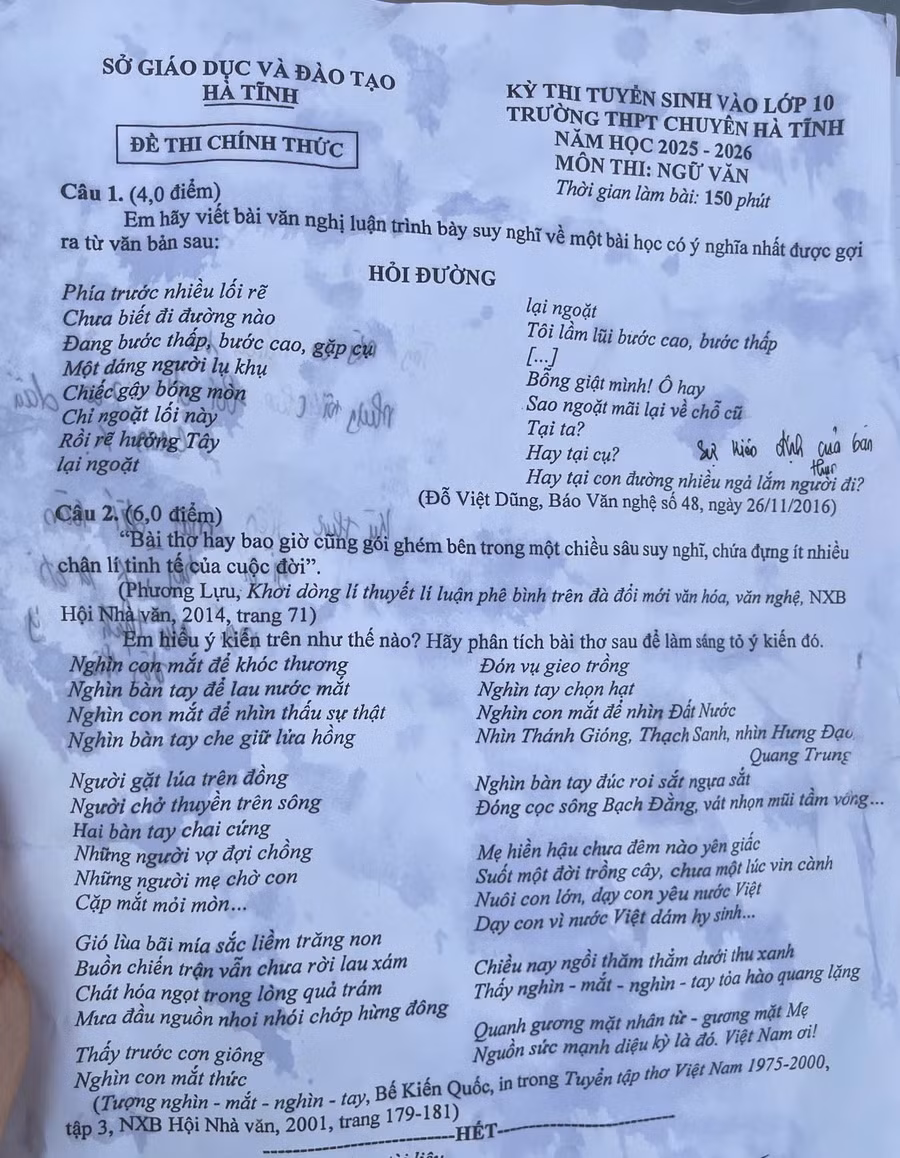 SỞ GIÁO DỤC VÀ ĐÀO TẠO
HÀ TĨNH
ĐỀ THI CHÍNH THỨC
KỲ THI TUYỂN SINH VÀO LỚP 10
TRƯỜNG THPT CHUYÊN HÀ TĨNH
NĂM HỌC 2025 - 2026
MÔN THI: NGỮ VĂN
Thời gian làm bài: 150 phút
Câu 1. (4,0 điểm)
Em hãy viết bài văn nghị luận trình bày suy nghĩ về một bài học có ý nghĩa nhất được gợi
ra từ văn bản sau:
HỎI ĐƯỜNG
Phía trước nhiều lối rẽ
Chưa biết đi đường nào
Đang bước thấp, bước cao, gặp cụ
Một dáng người lụ khụ
Chiếc gậy bóng mòn
Chỉ ngoặt lối này
Rồi rẽ hướng Tây
lại ngoặt
lại ngoặt
Tôi lầm lũi bước cao, bước thấp
[...]
Bỗng giật mình! Ô hay
Sao ngoặt mãi lại về chỗ cũ
Tại ta?
Hay tại cụ?
Hay tại con đường nhiều ngả lắm người đi?
sự kiên định của bản
thân
(Đỗ Việt Dũng, Báo Văn nghệ số 48, ngày 26/11/2016)
Câu 2. (6,0 điểm)
“Bài thơ hay bao giờ cũng gói ghém bên trong một chiều sâu suy nghĩ, chứa đựng ít nhiều
chân lí tinh tế của cuộc đời”.
(Phương Lựu, Khơi dòng lí thuyết lí luận phê bình trên đà đổi mới văn hóa, văn nghệ, NXB
Hội Nhà văn, 2014, trang 71)
Em hiểu ý kiến trên như thế nào? Hãy phân tích bài thơ sau để làm sáng tỏ ý kiến đó.
Nghìn con mắt để khóc thương
Nghìn bàn tay để lau nước mắt
Nghìn con mắt để nhìn thấu sự thật
Nghìn bàn tay che giữ lửa hồng
Người gặt lúa trên đồng
Người chở thuyền trên sông
Hai bàn tay chai cứng
Những người vợ đợi chồng
Những người mẹ chờ con
Cặp mắt mỏi mòn...
Gió lùa bãi mía sắc liềm trăng non
Buồn chiến trận vẫn chưa rời lau xám
Chát hóa ngọt trong lòng quả trám
Mưa đầu nguồn nhoi nhói chớp hừng đông
Thấy trước cơn giông
Nghìn con mắt thức
Đón vụ gieo trồng
Nghìn tay chọn hạt
Nghìn con mắt để nhìn Đất Nước
Nhìn Thánh Gióng, Thạch Sanh, nhìn Hưng Đạo,
Quang Trung
Nghìn bàn tay đúc roi sắt ngựa sắt
Đóng cọc sông Bạch Đằng, vát nhọn mũi tầm vông...
Mẹ hiền hậu chưa đêm nào yên giấc
Suốt một đời trồng cây, chưa một lúc vin cành
Nuôi con lớn, dạy con yêu nước Việt
Dạy con vì nước Việt dám hy sinh...
Chiều nay ngồi thăm thẳm dưới thu xanh
Thấy nghìn - mắt - nghìn - tay tỏa hào quang lặng
Quanh gương mặt nhân từ - gương mặt Mẹ
Nguồn sức mạnh diệu kỳ là đó. Việt Nam ơi!
(Tượng nghìn - mắt - nghìn - tay, Bế Kiến Quốc, in trong Tuyển tập thơ Việt Nam 1975-2000,
tập 3, NXB Hội Nhà văn, 2001, trang 179-181)
HẾT